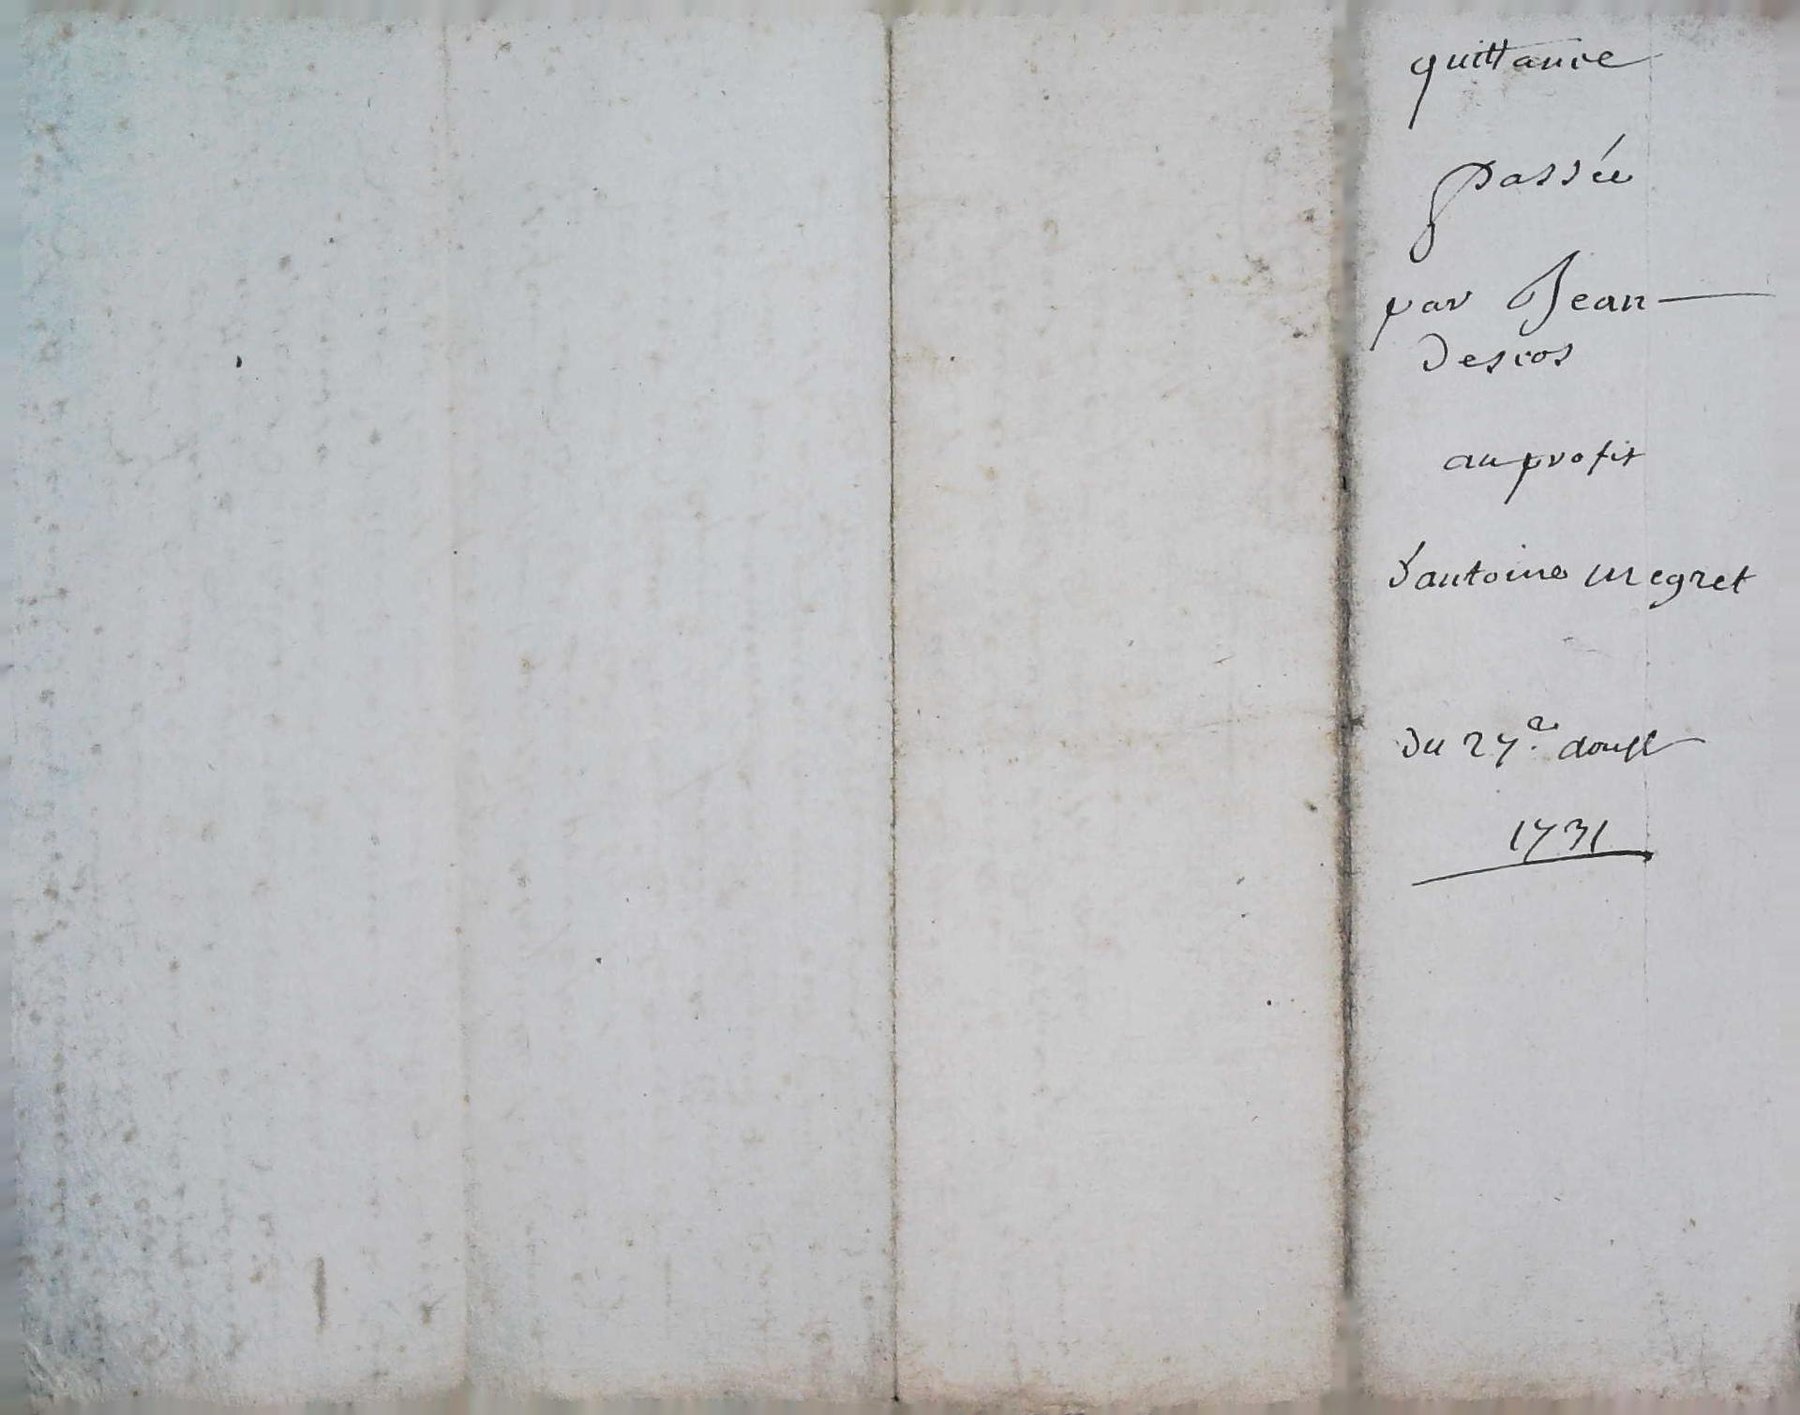 quittance
passée
par Jean
Descos
au profit
d'antoine megret
du 27e. doust
1731